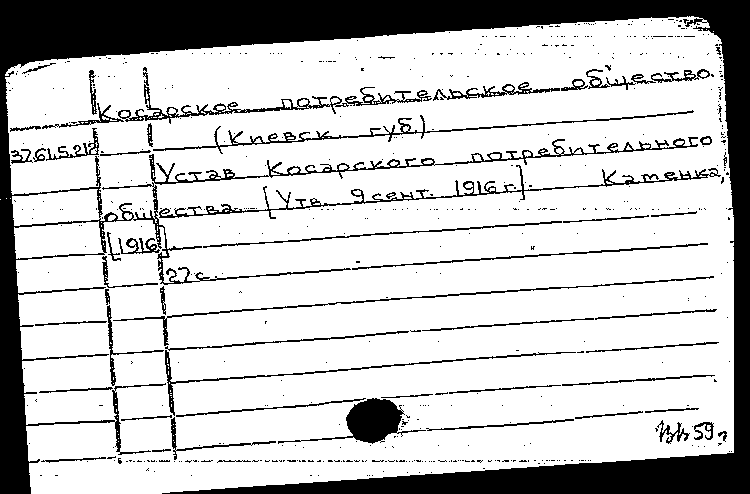 Косарское потребительское общество.
(Киевск. губ.)
37.61.5.212
Устав Косарского потребительного
общества. [Утв. 9 сент. 1916 г.]. Каменка,
[1916].
27 с.
59 г